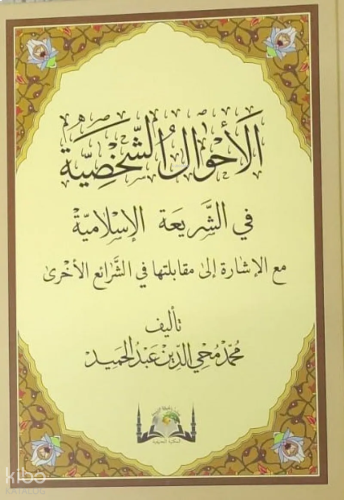 الأحوال الشخصية
في الشريعة الإسلامية
مع الإشارة إلى مقابلتها في الشرائع الأخرى
تأليف
محمد محي الدين عبد الحميد
kibo
KATALOG